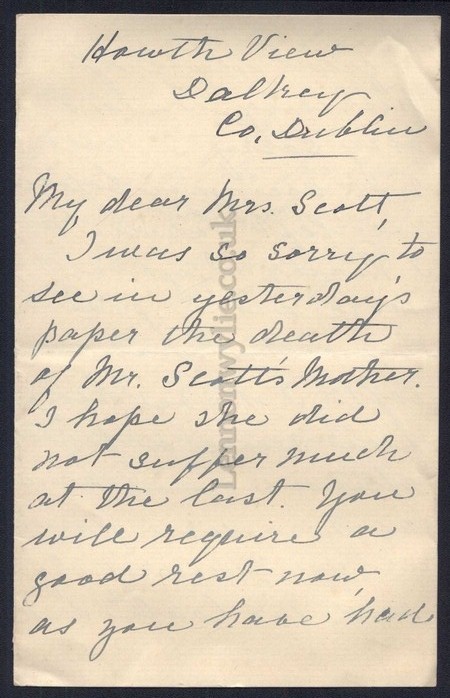 Howth View
Dalkey
Co. Dublin
My dear Mrs. Scott,
I was so sorry to
see in yesterday's
paper the death
of Mr. Scott's Mother.
I hope she did
not suffer much
at the last. You
will require a
good rest now,
as you have had
Lennonwylie.co.uk